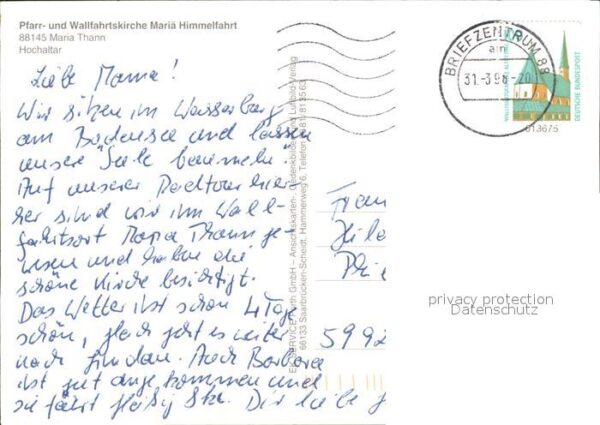 Pfarr- und Wallfahrtskirche Mariä Himmelfahrt
88145 Maria Thann
Hochaltar
Liebe Mama!
Wir sitzen in Wasserburg
am Bodensee und lassen
unsere Seele baumeln.
Auf unserer Radtour hier
her sind wir im Wall-
fahrtsort Maria Thann ge-
wesen und haben die
schöne Kirche besichtigt.
Das Wetter ist schon 4 Tage
schön, gleich geht es weiter
nach Lindau. Auch Barbara
ist gut angekommen und
sie fährt fleißig Ski. Dir liebe
BRIEFZENTRUM 88
31.-3.98-20
DEUTSCHE BUNDESPOST
WALLFAHRTSKAPELLE ALTÖTTING
613676
66133 Saarbrücken-Scheidt, Hammerweg 6, Telefon
Frau
5992
privacy protection
Datenschutz